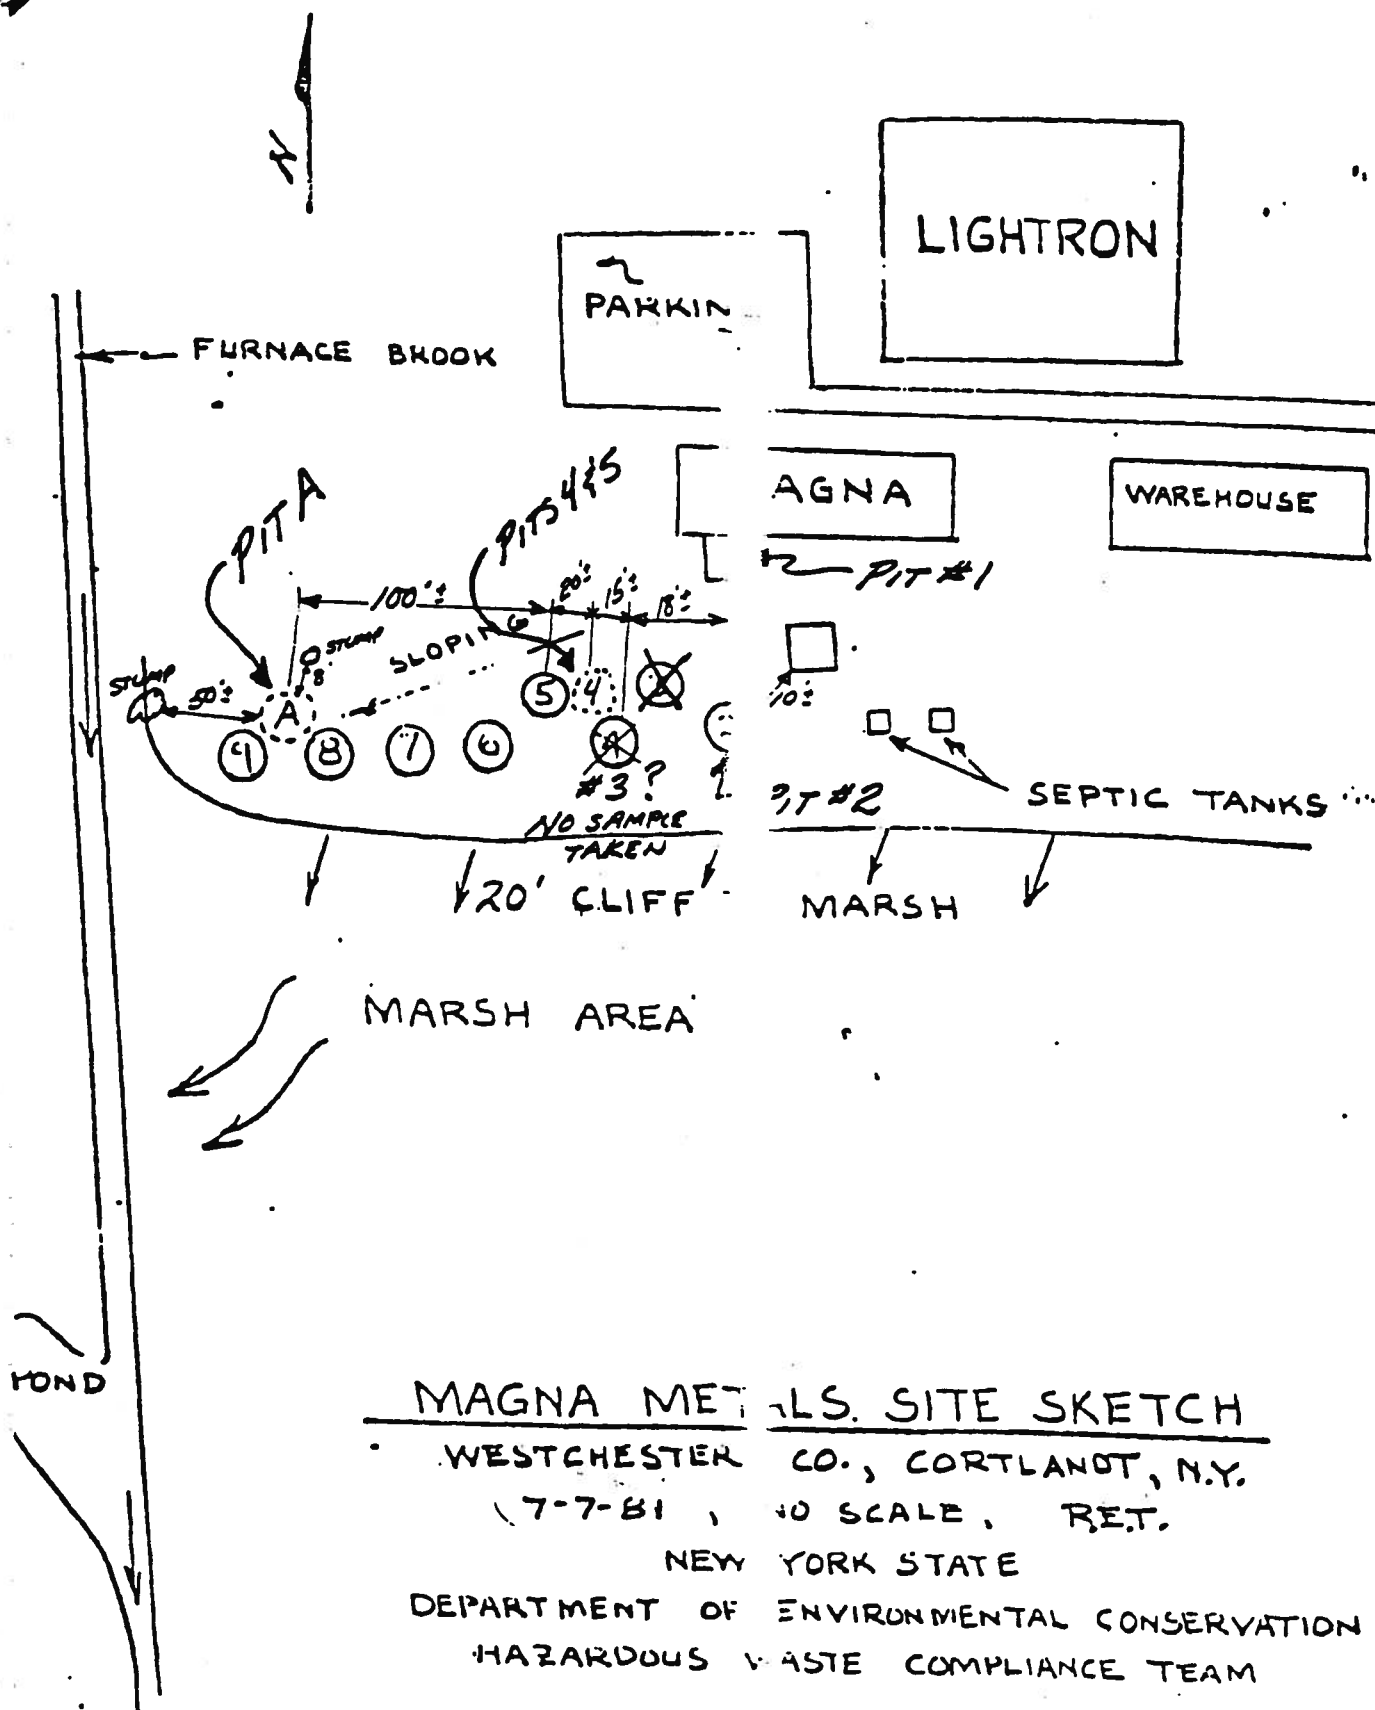 N
LIGHTRON
PARKIN
FURNACE BROOK
AGNA
WAREHOUSE
PIT A
PITS 4 & 5
PIT #1
100'±
20'±
15'±
18'±
STUMP
8'
SLOPING
STUMP
50'±
A
5
4
10'±
9
8
7
6
#3?
PIT #2
SEPTIC TANKS
NO SAMPLE
TAKEN
20' CLIFF
MARSH
MARSH AREA
POND
MAGNA METALS. SITE SKETCH
WESTCHESTER CO., CORTLANDT, N.Y.
7-7-81, NO SCALE, R.E.T.
NEW YORK STATE
DEPARTMENT OF ENVIRONMENTAL CONSERVATION
HAZARDOUS WASTE COMPLIANCE TEAM